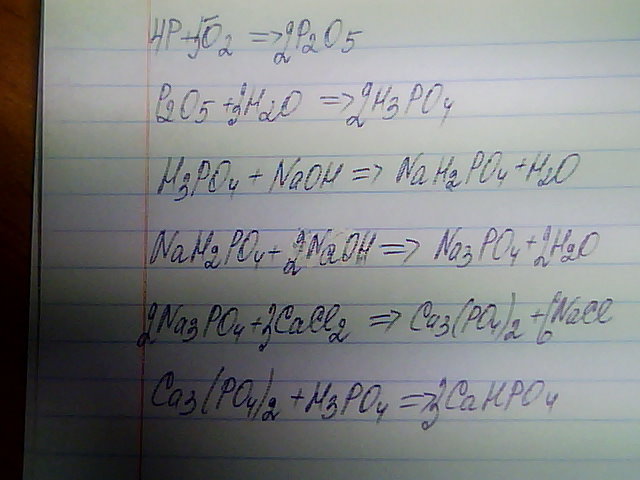 4P+5O2 => 2P2O5
P2O5+3H2O => 2H3PO4
H3PO4 + NaOH => NaH2PO4+H2O
NaH2PO4+2NaOH => Na3PO4+2H2O
2Na3PO4+3CaCl2 => Ca3(PO4)2+6NaCl
Ca3(PO4)2+H3PO4 => 3CaHPO4